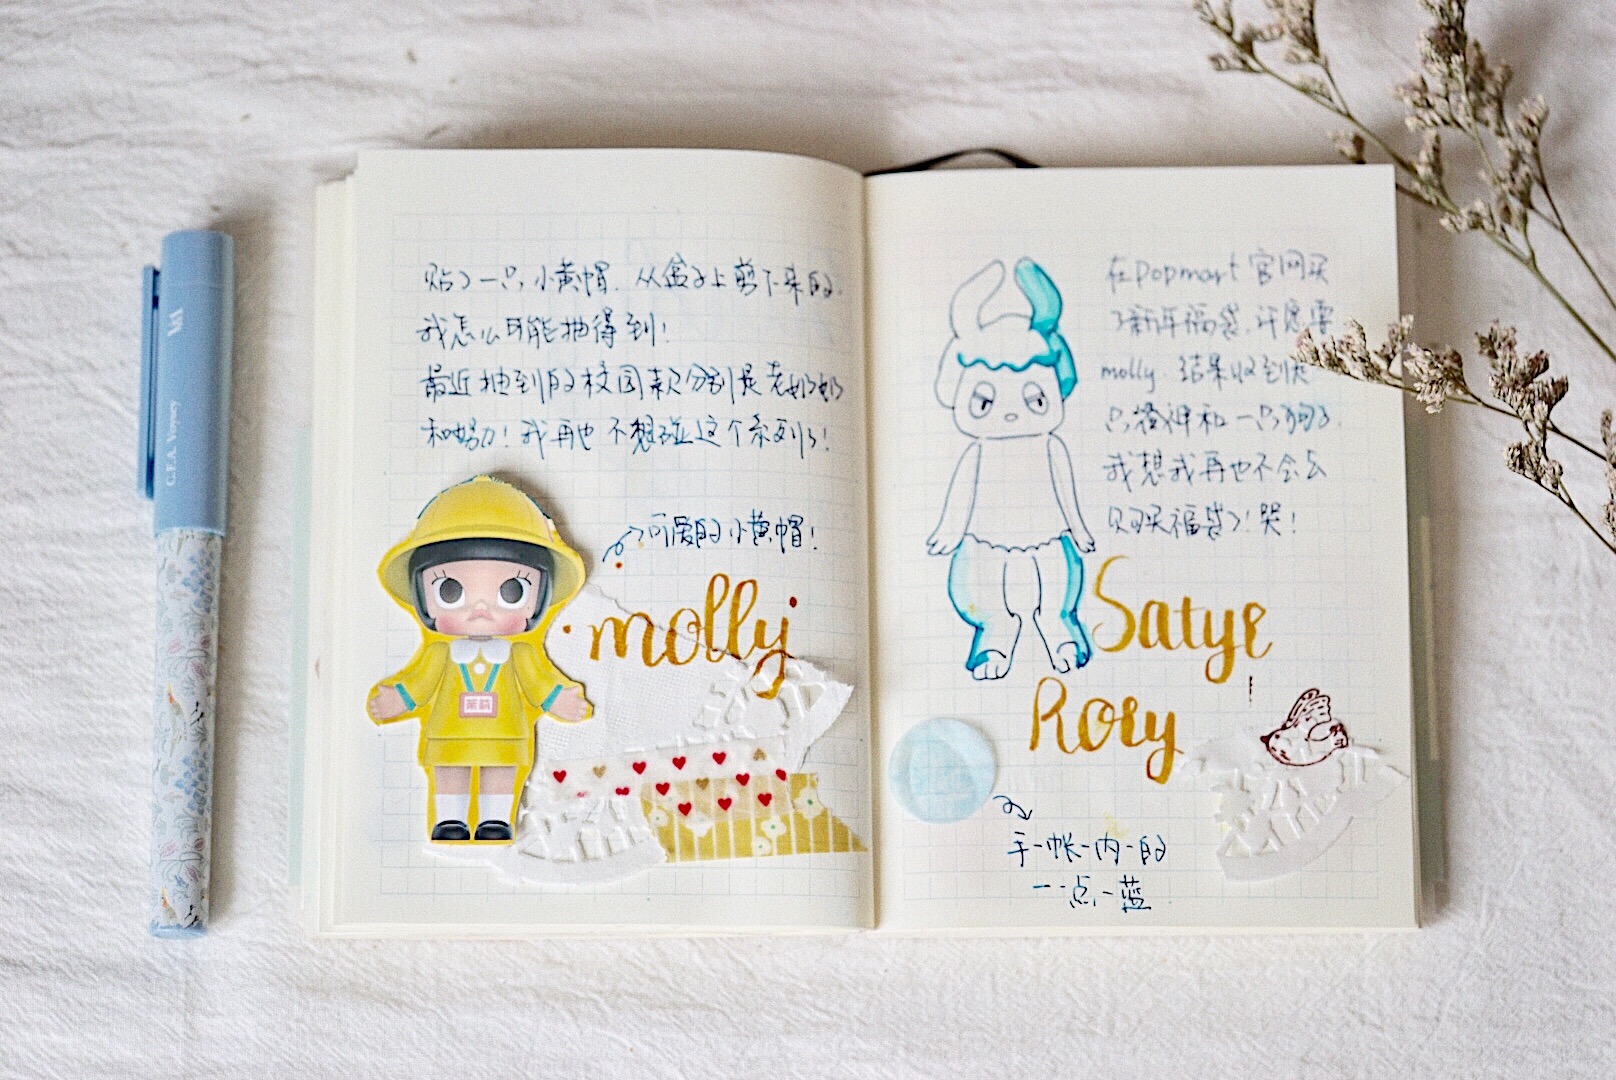 贴了一只小黄帽. 从盒子上剪下来的.
我怎么可能抽得到!
最近抽到的校园款分别是老奶奶
和努力! 我再也不想碰这个系列了!
可爱的小黄帽!
molly
茉莉
在popmart官网买
了新年福袋. 许愿要
molly. 结果收到
只 神和一只
我想我再也不会去
买福袋了! 哭!
Satyr
Rory
手-帐-内-的
一-点-蓝
G.F.A. Voyacy